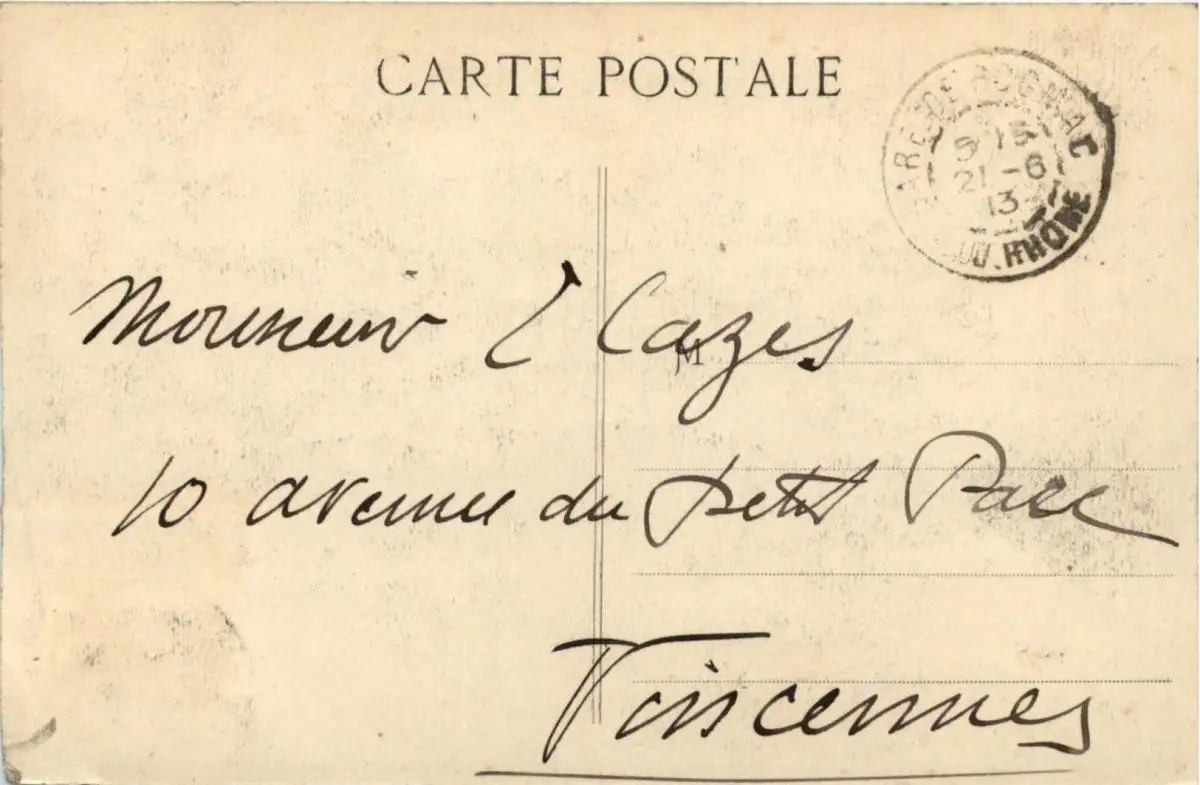 CARTE POSTALE
GARE DE ROGNAC
21 -6
13
DU-RHONE
Monsieur L Cazes
M
10 avenue du petit Parc
Vincennes